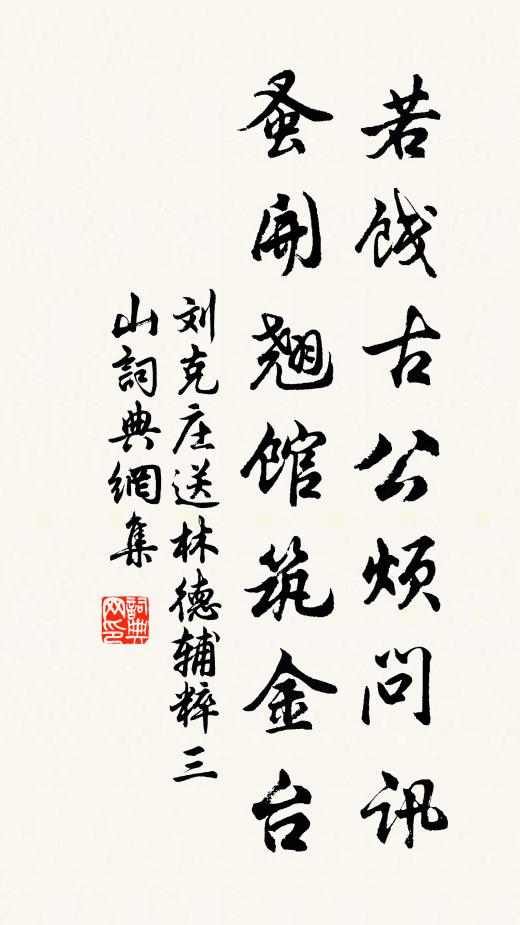 若饯古公烦问讯
蚤開翘馆筑金台
刘克庄送林德辅粹三
山詞典網集
詞典
网印